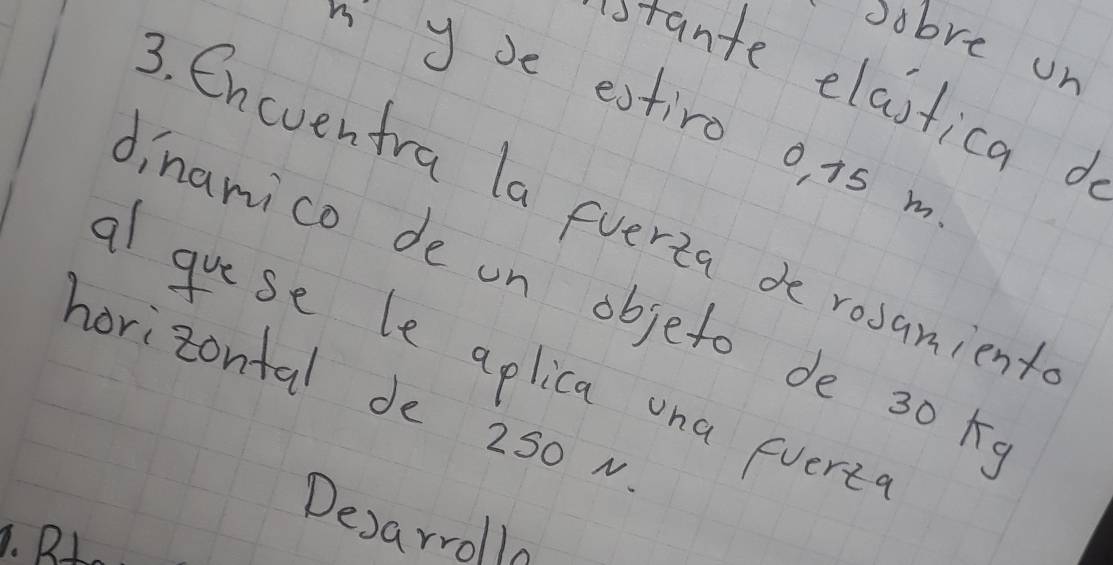 sobre un
elástica de
m y se estiro 0,15 m.
3. Encuentra la fuerza de rosamiento
dínamico de un objeto de 30 Kg
al que se le aplica una fuerza
horizontal de 250 N.
Desarrollo
1.